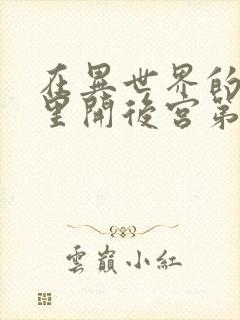 在異世界的
里開後宮第
雲巔小紅